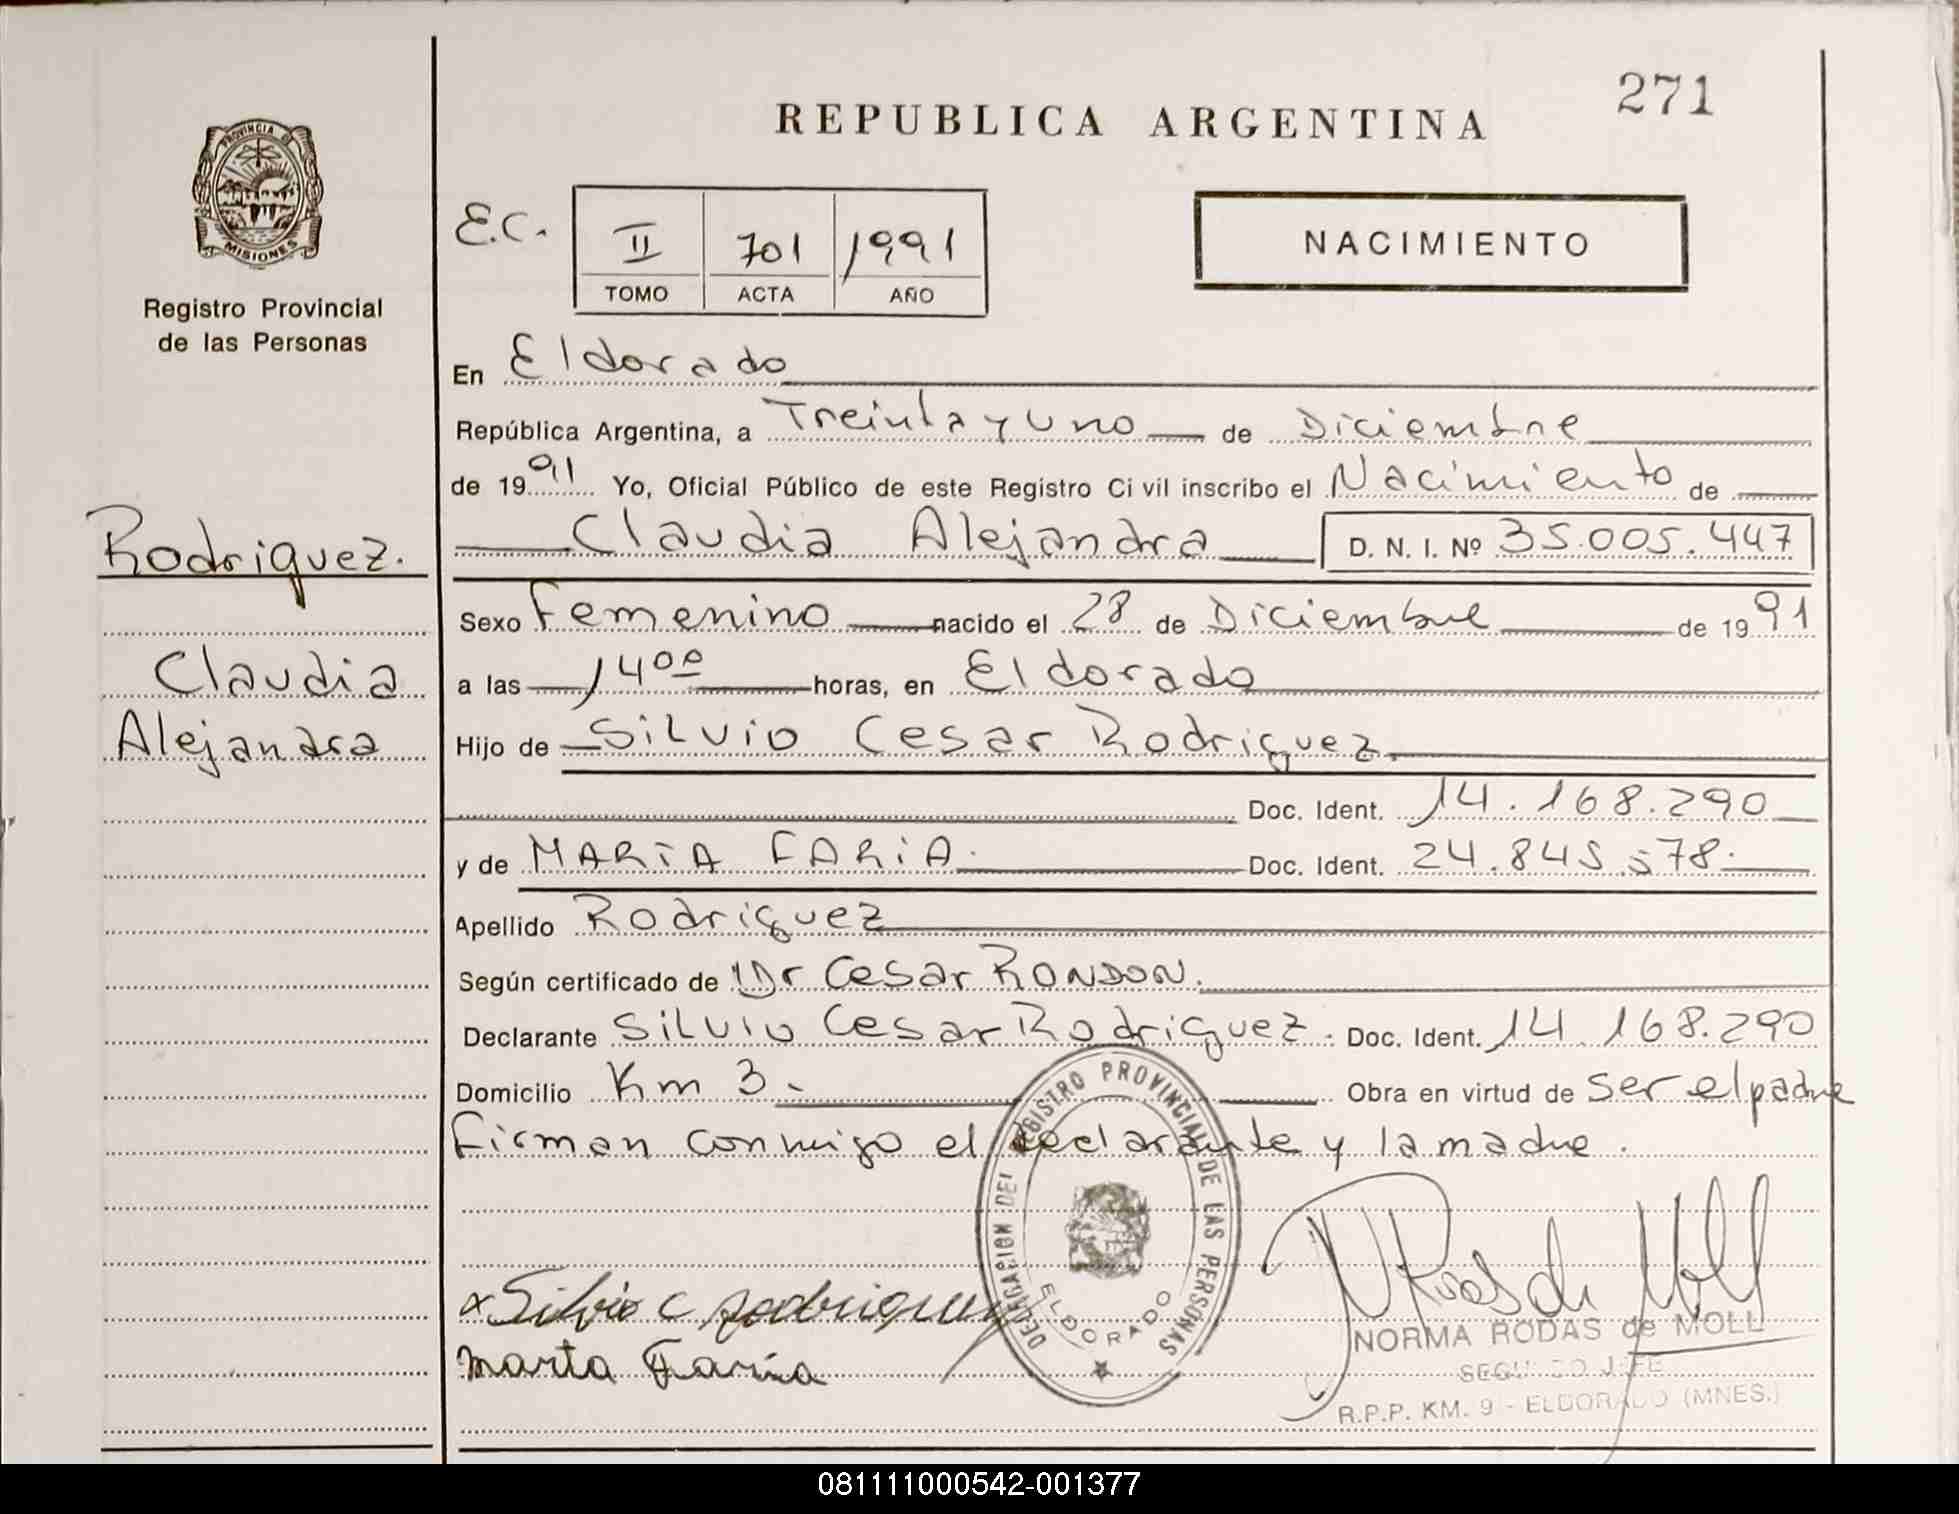 271
REPUBLICA ARGENTINA
PROVINCIA DE
MISIONES
Registro Provincial
de las Personas
E.C. II 701 1991
TOMO ACTA AÑO
NACIMIENTO
En Eldorado
República Argentina, a Treinta y uno de Diciembre
de 1991 Yo, Oficial Público de este Registro Civil inscribo el Nacimiento de
Claudia Alejandra D. N. I. Nº 35.005.447
Rodriguez.
Claudia
Alejandra
Sexo Femenino nacido el 28 de Diciembre de 1991
a las 14 00 horas, en Eldorado
Hijo de Silvio Cesar Rodriguez
Doc. Ident. 14.168.290
y de MARTA FARIA. Doc. Ident. 24.845.578.
Apellido Rodriguez
Según certificado de Dr Cesar RONDON.
Declarante Silvio Cesar Rodriguez. Doc. Ident. 14.168.290
Domicilio Km 3. Obra en virtud de ser el padre
Firman conmigo el declarante y la madre.
DELEGACION DEL REGISTRO PROVINCIAL DE LAS PERSONAS
ELDORADO
x Silvio C Rodriguez
Marta Faria
N Rodas de Moll
NORMA RODAS de MOLL
SEGUNDO JEFE
R.P.P. KM. 9 - ELDORADO (MNES.)
081111000542-001377